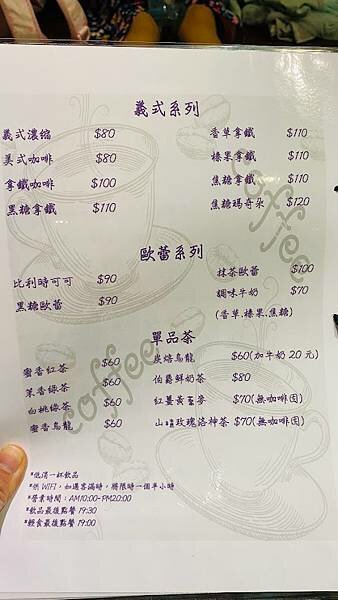 義式系列
義式濃縮 $80 香草拿鐵 $110
美式咖啡 $80 榛果拿鐵 $110
拿鐵咖啡 $100 焦糖拿鐵 $110
黑糖拿鐵 $110 焦糖瑪奇朵 $120
歐蕾系列
比利時可可 $90 抹茶歐蕾 $100
黑糖歐蕾 $90 調味牛奶 $70
(香草,榛果,焦糖)
單品茶
蜜香紅茶 $60 炭焙烏龍 $60(加牛奶 20 元)
茉香綠茶 $60 伯爵鮮奶茶 $80
白桃綠茶 $60 紅薑黃蕎麥 $70(無咖啡因)
蜜香烏龍 $60 玫瑰洛神茶 $70(無咖啡因)
coffee
coffee
*低消一杯飲品
*供 WIFI，如遇客滿時，將限時一個半小時
*營業時間：AM10:00-PM20:00
*飲品最後點餐 19:30
*輕食最後點餐 19:00